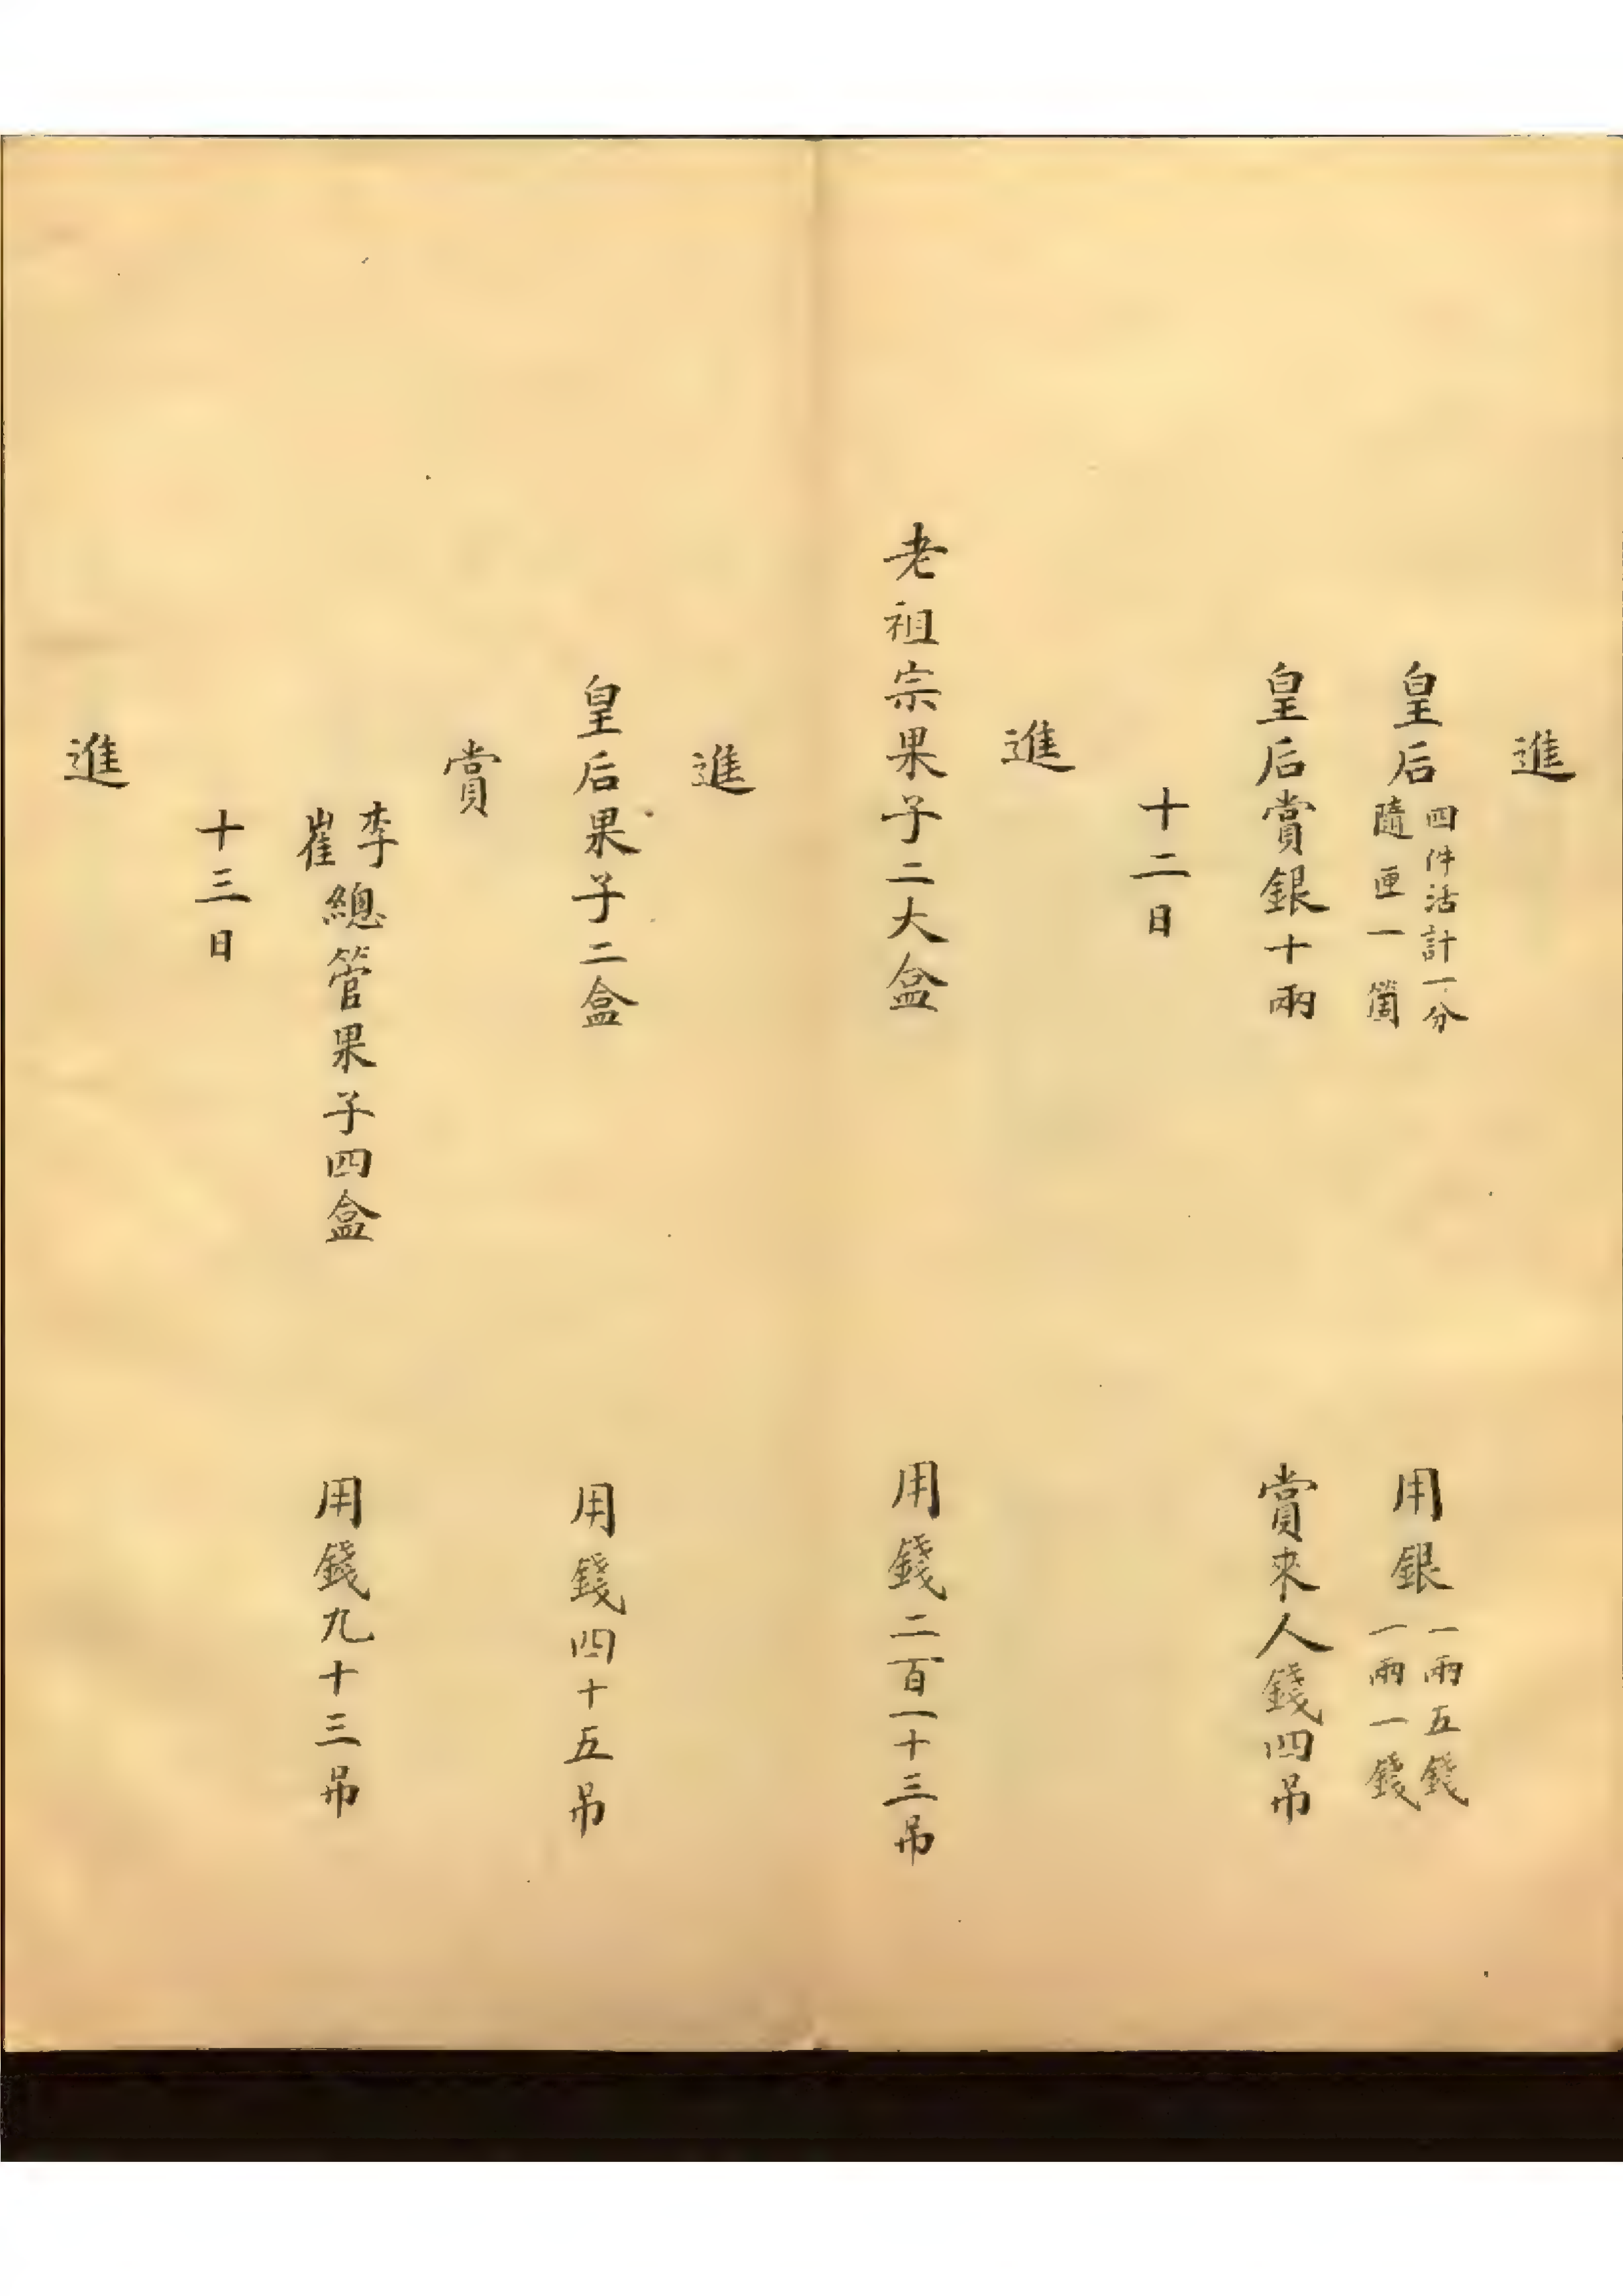 進
皇后四件活計一分隨匣一箇 用銀一兩五錢一兩一錢
皇后賞銀十兩 賞來人錢四吊
十二日
進
老祖宗果子二大盒 用錢二百一十三吊
進
皇后果子二盒 用錢四十五吊
賞
李崔總管果子四盒 用錢九十三吊
十三日
進